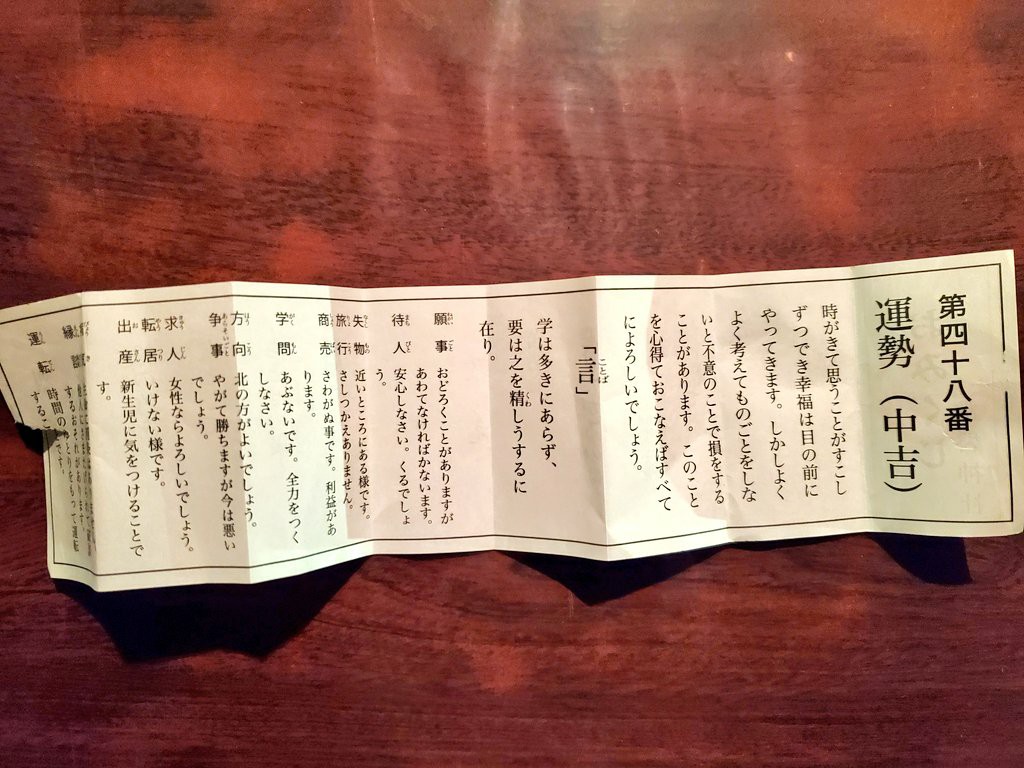 第四十八番
運勢（中吉）
時がきて思うことがすこし
ずつでき幸福は目の前に
やってきます。しかしよく
よく考えてものごとをしな
いと不意のことで損をする
ことがあります。このこと
を心得ておこなえばすべて
によろしいでしょう。
「言」
ことば
学は多きにあらず、
要は之を精しうするに
在り。
願事 おどろくことがありますが
あわてなければかないます。
待人 安心しなさい。くるでしょ
う。
失物 近いところにある様です。
旅行 さしつかえありません。
商売 さわがぬ事です。利益があ
ります。
学問 あぶないです。全力をつく
しなさい。
方向 北の方がよいでしょう。
争事 やがて勝ちますが今は悪い
でしょう。
求人 女性ならよろしいでしょう。
転居 いけない様です。
出産 新生児に気をつけることで
す。
縁談
するおそれがあります
運転 時間のゆとりをもって運転
するこ です。